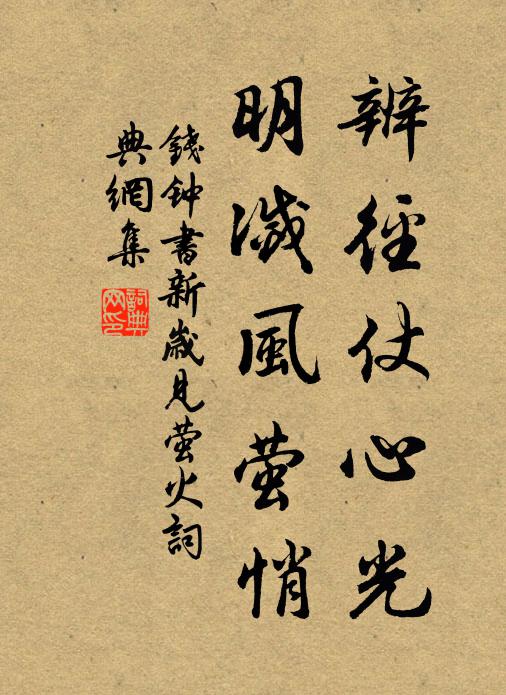 辨徑仗心光
明滅風螢悄
錢钟書新歲見螢火詞
典網集
詞典
网印